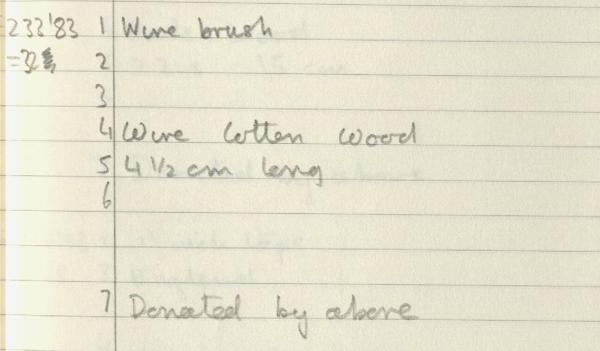 233'83 1 Wire brush
=32 2
3
4 Wire Cotten Wood
5 4 1/2 cm long
6
7 Donated by above